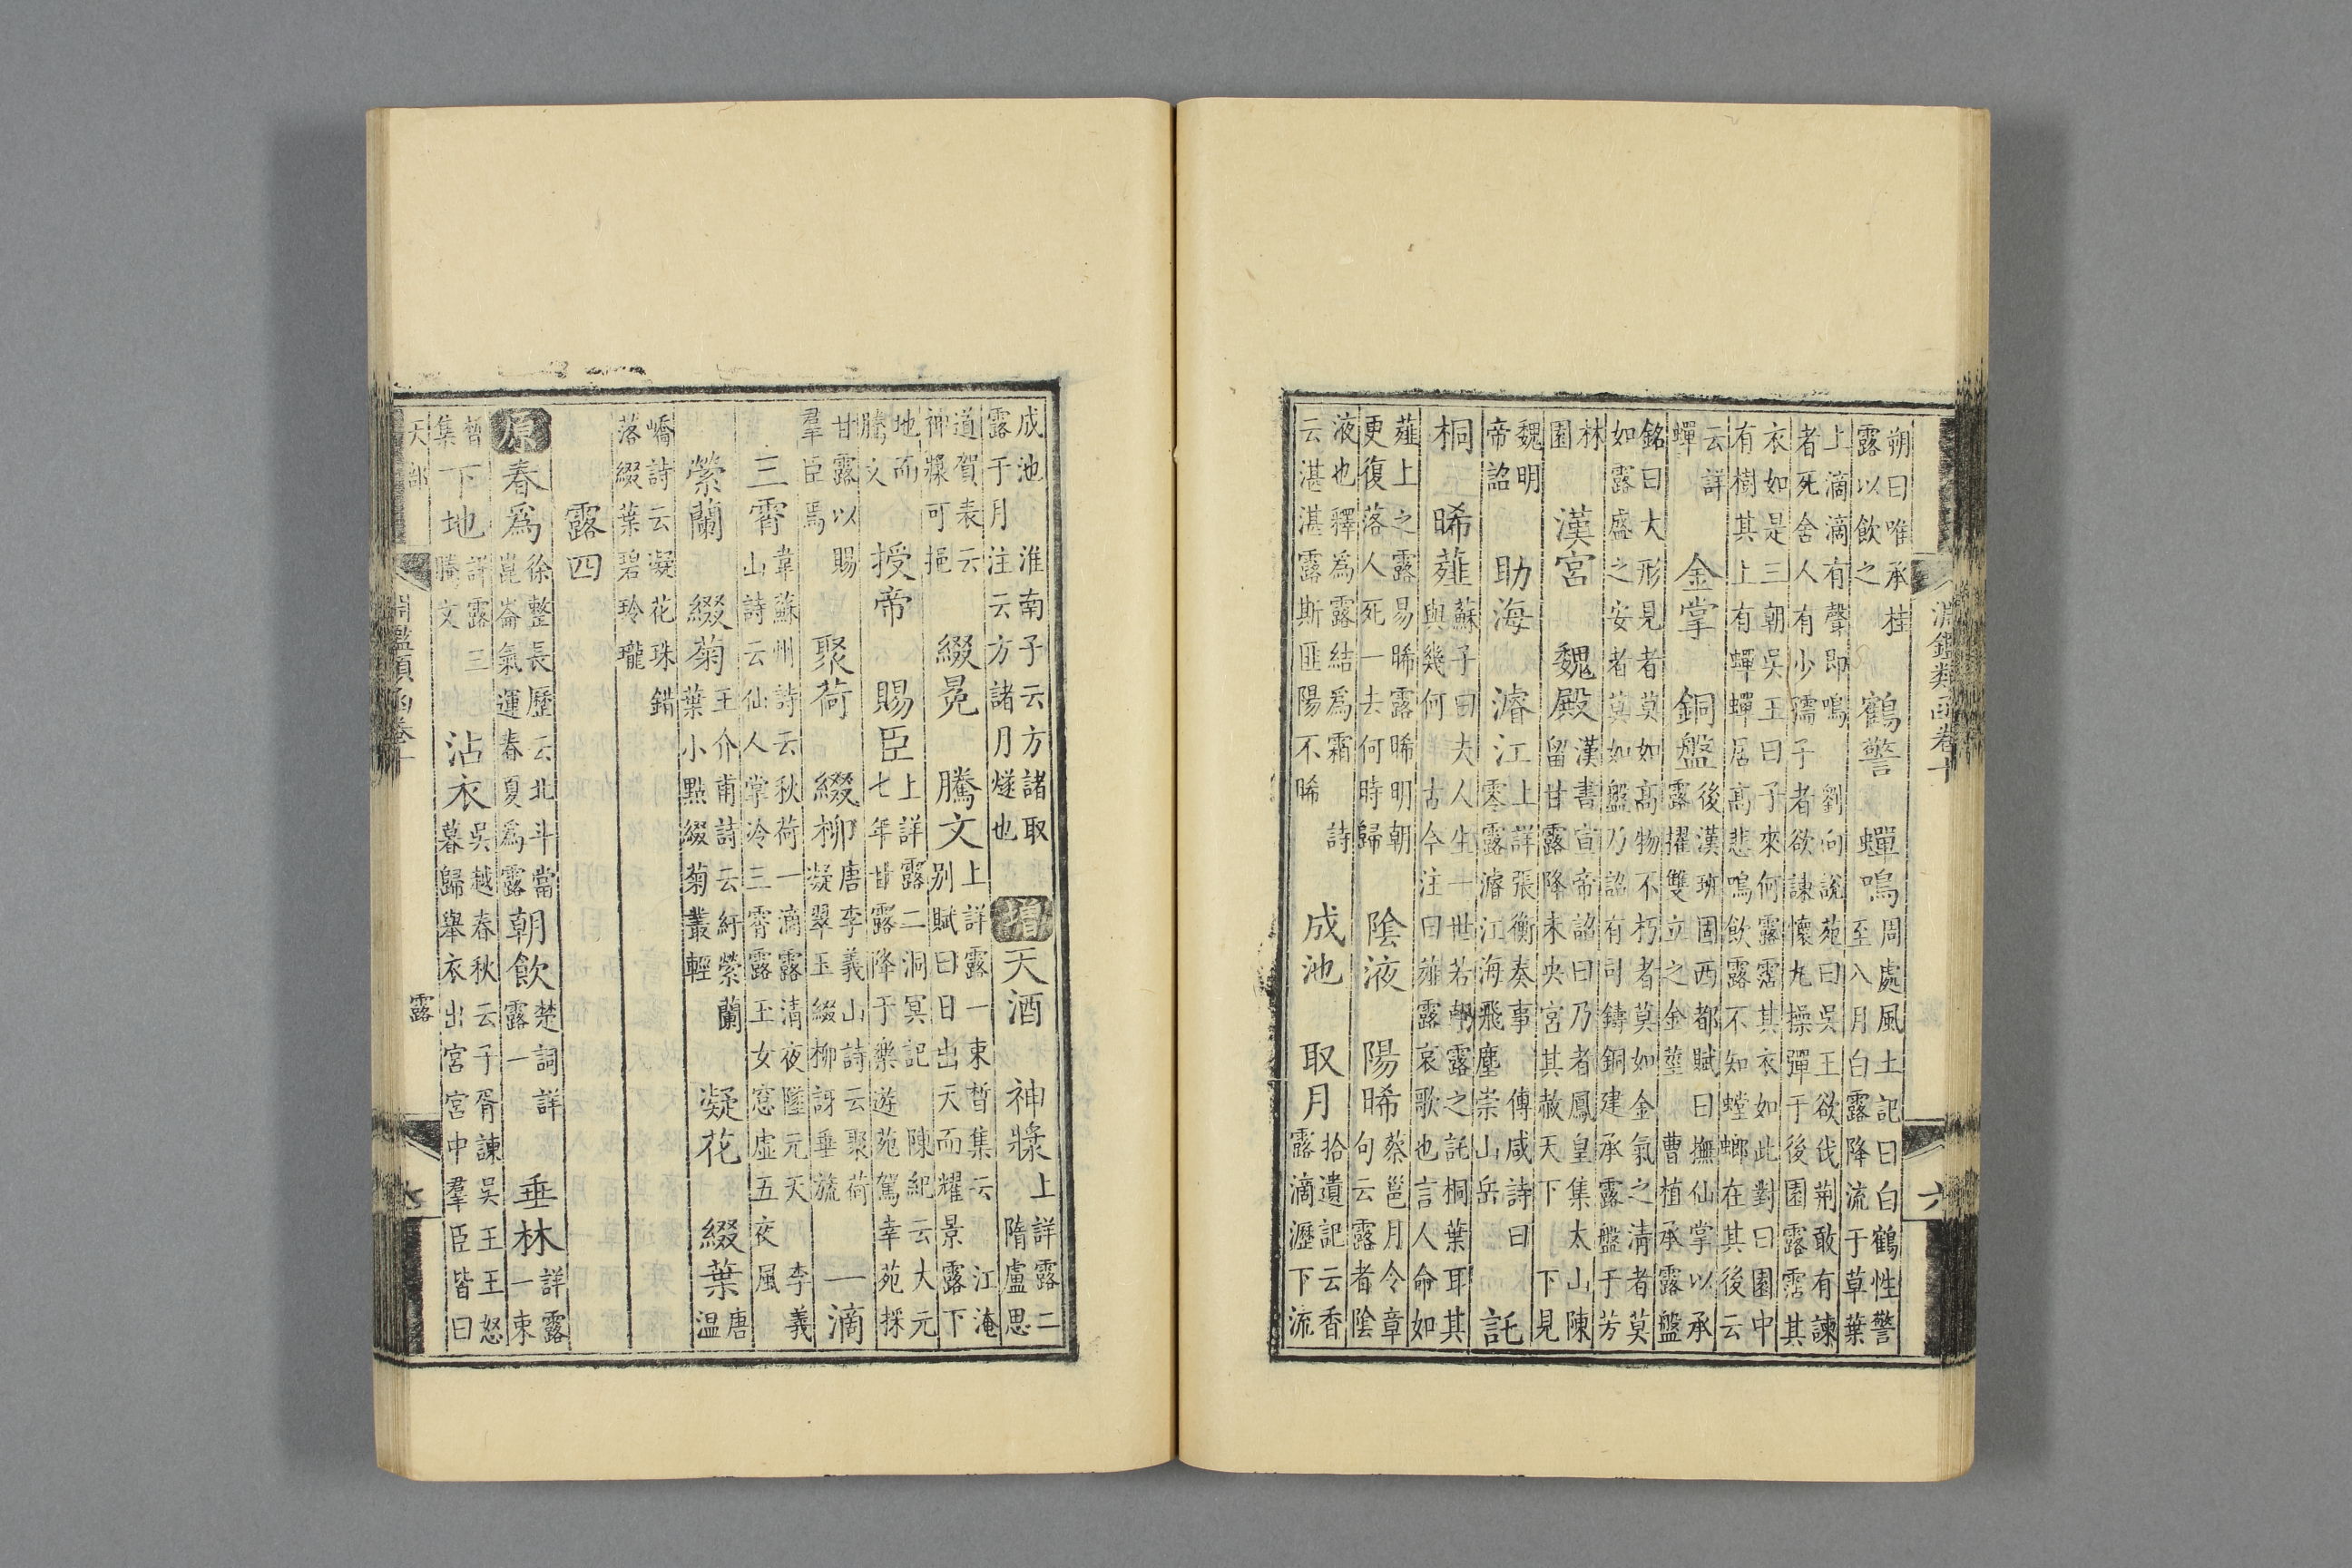 淵鑑類函卷十 六
朔曰唯承桂
露以飲之
鶴警 蟬鳴
周處風土記曰白鶴性警
至八月白露降流于草葉
上滴滴有聲即鳴 劉向說苑曰吳王欲伐荆敢有諫
者死舍人有少孺子者欲諫懷丸操彈于後園露霑其
衣如是三朝吳王曰子來何露霑其衣如此對曰園中
有樹其上有蟬蟬居高悲鳴飲露不知螳螂在其後云
云詳
蟬
金掌 銅盤
後漢班固西都賦曰撫仙掌以承
露擢雙立之金莖 曹植承露盤
銘曰大形見者莫如高物不朽者莫如金氣之清者莫
如露盛之安者莫如盤乃詔有司鑄銅建承露盤于芳
林
園
漢宮 魏殿
漢書宣帝詔曰乃者鳳皇集太山陳
留甘露降未央宮其赦天下 下見
魏明
帝詔
助海 濬江
上詳張衡奏事 傅咸詩曰
零露濬江海飛塵崇山岳
託
桐 晞薤
蘇子曰夫人生一世若朝露之託桐葉耳其
與幾何 古今注曰薤露哀歌也言人命如
薤上之露易晞露晞明朝
更復落人死一去何時歸
陰液 陽晞
蔡邕月令章
句云露者陰
液也釋為露結為霜 詩
云湛湛露斯匪陽不晞
成池 取月
拾遺記云香
露滴瀝下流
成池 淮南子云方諸取
露于月注云方諸月燧也
增 天酒 神漿
上詳露二
隋盧思
道賀表云
神漿可挹
綴冕 騰文
上詳露一束晳集云 江淹
別賦曰日出天而耀景露下
地而
騰文
授帝 賜臣
上詳露二洞冥記 陳紀云大元
七年甘露降于樂遊苑駕幸苑採
甘露以賜
羣臣焉
聚荷 綴柳
唐李義山詩云聚荷
凝翠玉綴柳訝垂旒
一滴
三霄
韋蘇州詩云秋荷一滴露清夜墜元天 李義
山詩云仙人掌冷三霄露玉女窓虛五夜風
縈蘭 綴菊
王介甫詩云紆縈蘭
葉小點綴菊叢輕
凝花 綴葉
唐
温
嶠詩云凝花珠錯
落綴葉碧玲瓏
露四
原 春為
徐整長歷云北斗當
崑崙氣運春夏為露
朝飲
楚詞詳
露一
垂林
詳露
一束
晳
集
下地
詳露三
騰文
沾衣
吳越春秋云子胥諫吳王王怒
暮歸舉衣出宮宮中羣臣皆曰
天部 淵鑑類函卷十 露 七